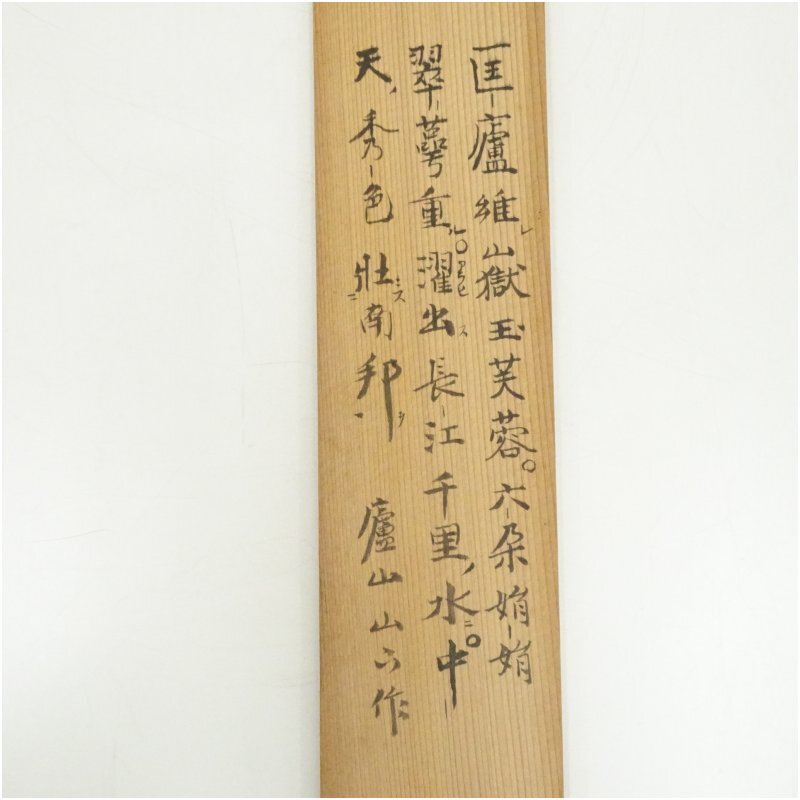 匡廬維山嶽玉芙蓉。六朶娟娟
翠萼重。濯出長江千里水。中
天秀色壯南邦
廬山山六作